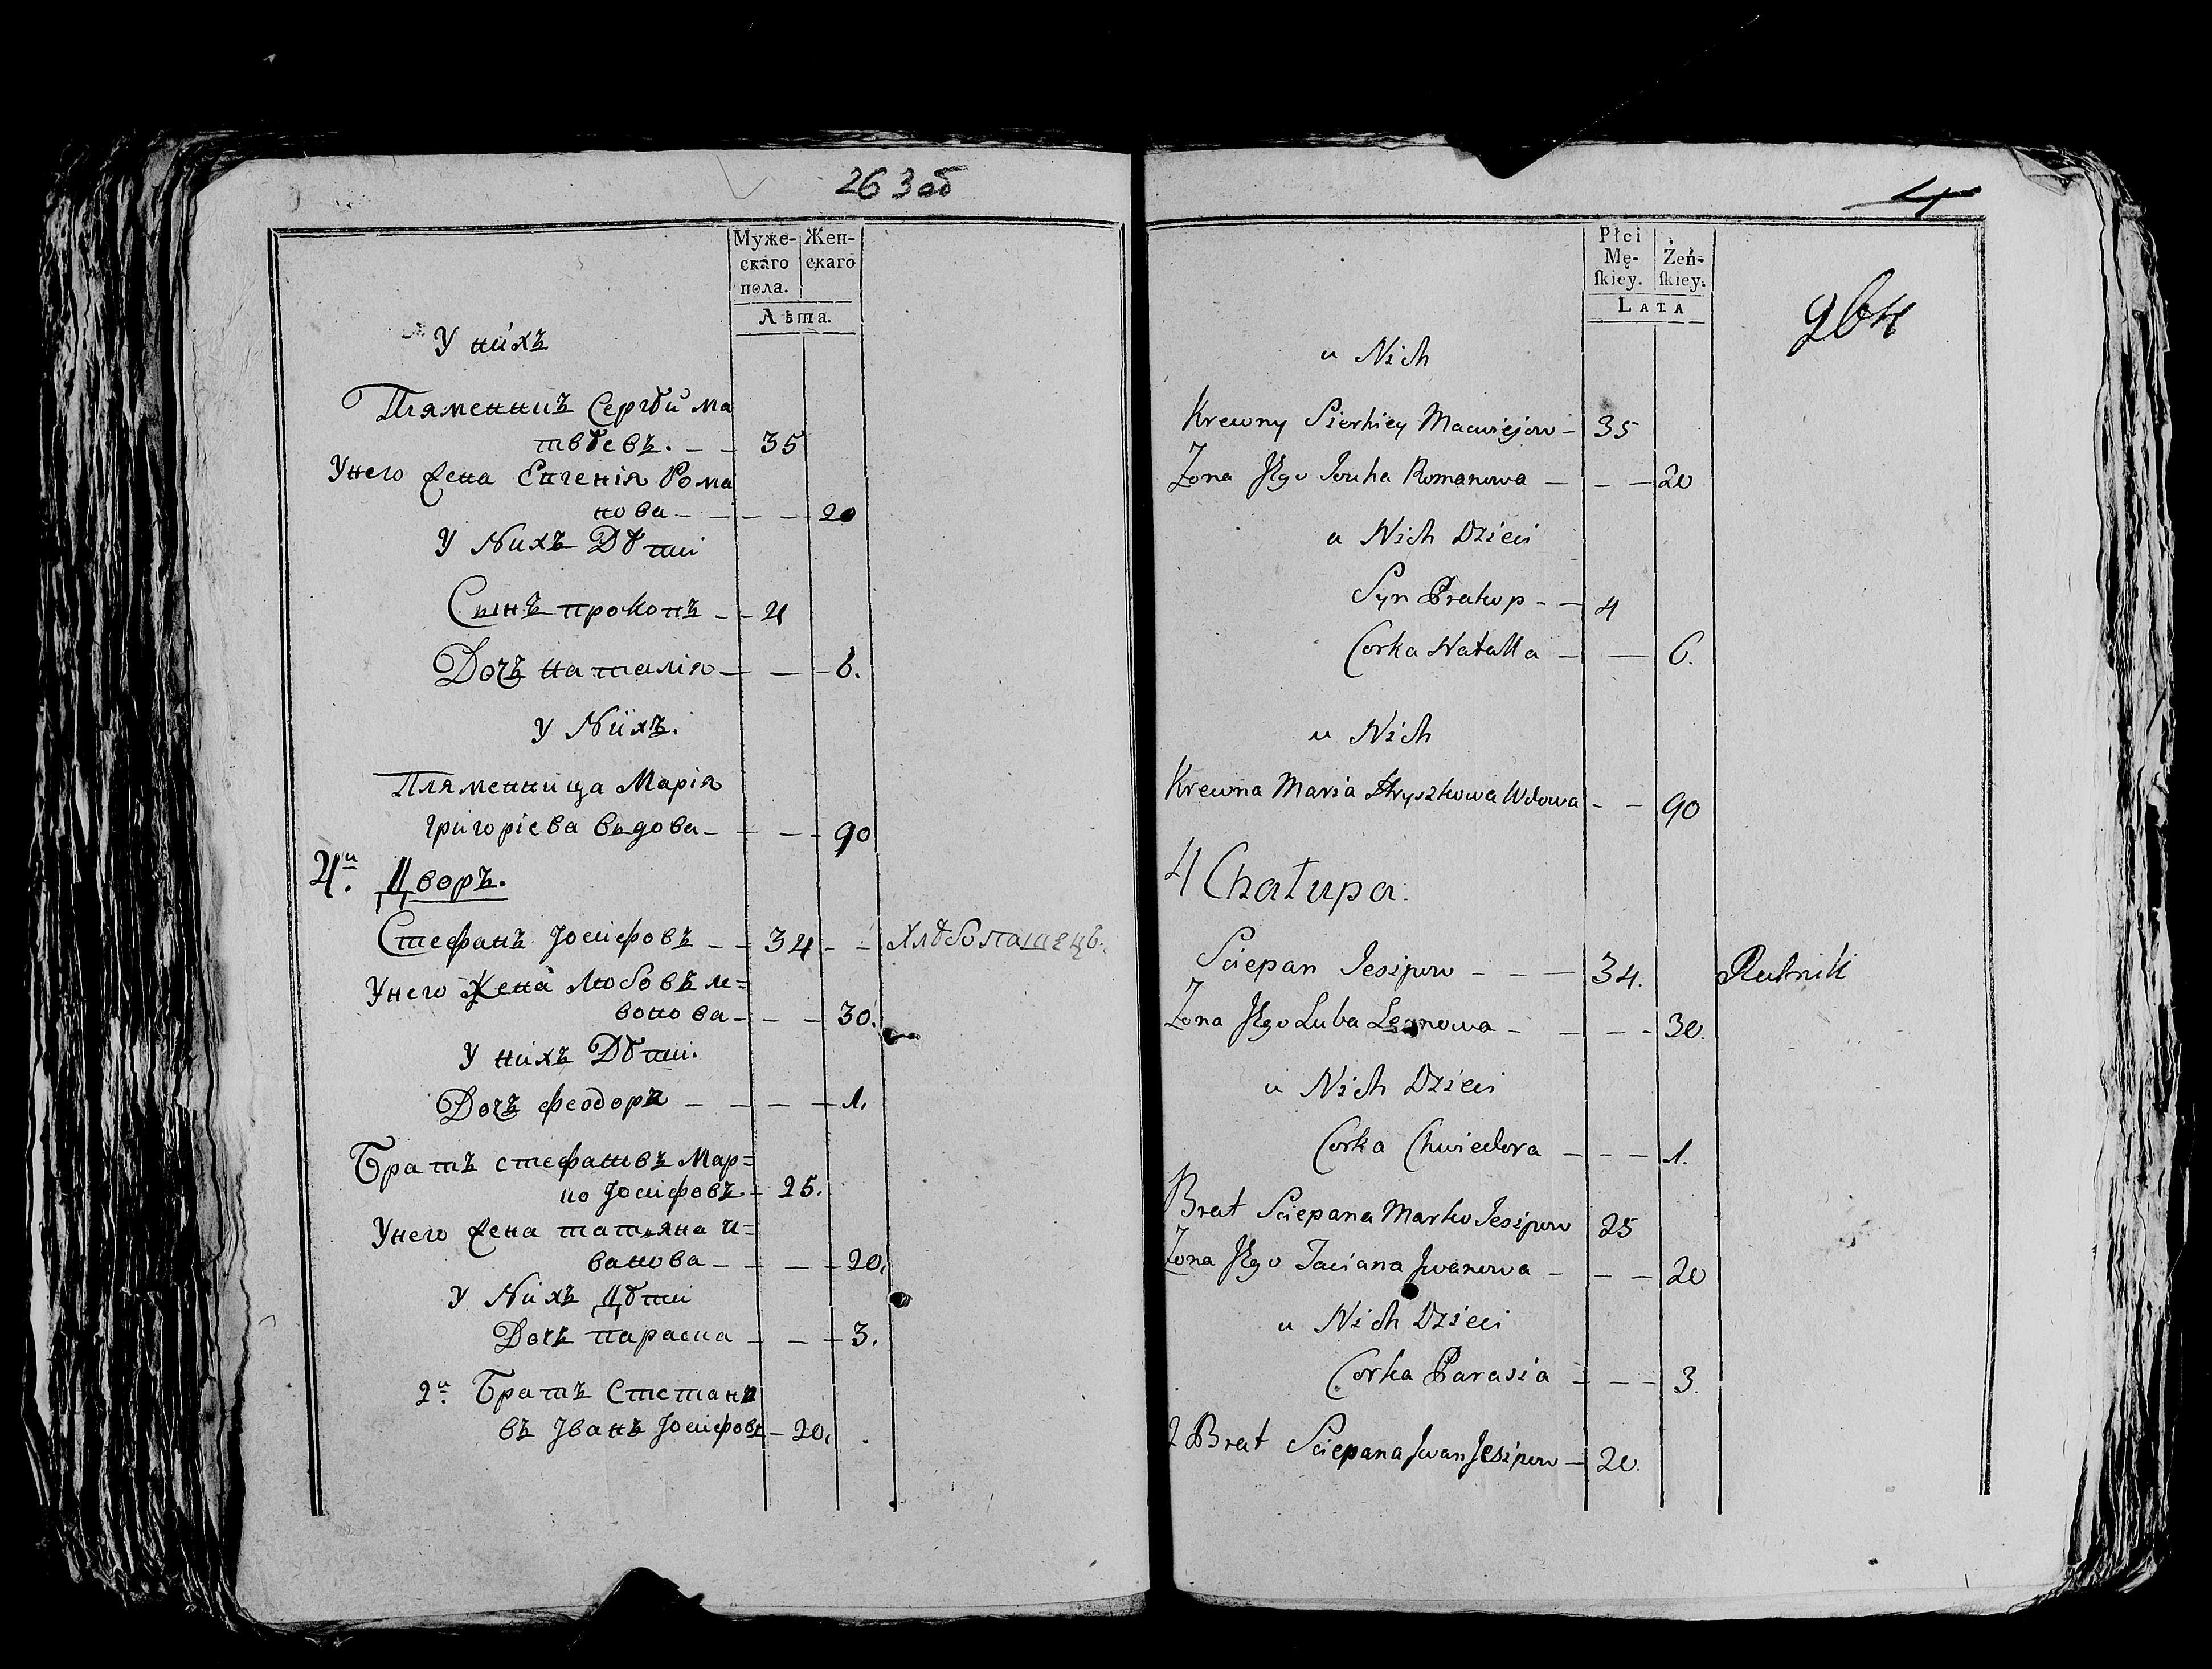 263 об
Муже- Жен-
скаго скаго
пола.
Лѣта.
У нихъ
Пляменникъ Сергѣй Ма
твѣевъ. – – 35
Унего жена Евгенія Рома
нова – – – – 20
У Нихъ Дѣти
Сынъ прокопъ – – 4
Дочъ наталія – – – 6.
У Нихъ.
Пляменница Марія
григоріева вьдова – – – 90
4й. Дворъ.
Стефанъ Іосифовъ – – 34 – – Хлѣбопашецъ.
Унего Жена Любовъ ле=
вонова – – – 30.
У нихъ Дѣти.
Дочъ феодора – – – – 1.
Братъ стефановъ Мар=
ко Іосифовъ – 25.
Унего жена татьяна и=
ванова – – – – 20.
У Нихъ Дѣти
Дочъ параска – – – 3.
2й. Братъ Степана
въ Іванъ Іосифовъ – 20.
4
Płci
Mę- Żeń-
ſkiey. ſkiey.
LATA
264
u Nich
Krewny Sierhiey Maciejow – 35
Zona Jego Jouha Romanowa – – – 20
u Nich Dzieci
Syn Prakop – – 4
Corka Natalla – – 6.
u Nich
Krewna Maria Hryszkowa Wdowa – – 90
4 Chałupa.
Sciepan Jesipow – – – 34. Rolnik
Zona Jego Luba Leonowa – – – – 30.
u Nich Dzieci
Corka Chwiedora – – – 1.
Brat Sciepana Marko Jesipow 25
Zona Jego Taciana Jwanowa – – – 20
u Nich Dzieci
Corka Parasia – – – 3.
2 Brat Sciepana Jwan Jesipow – 20.